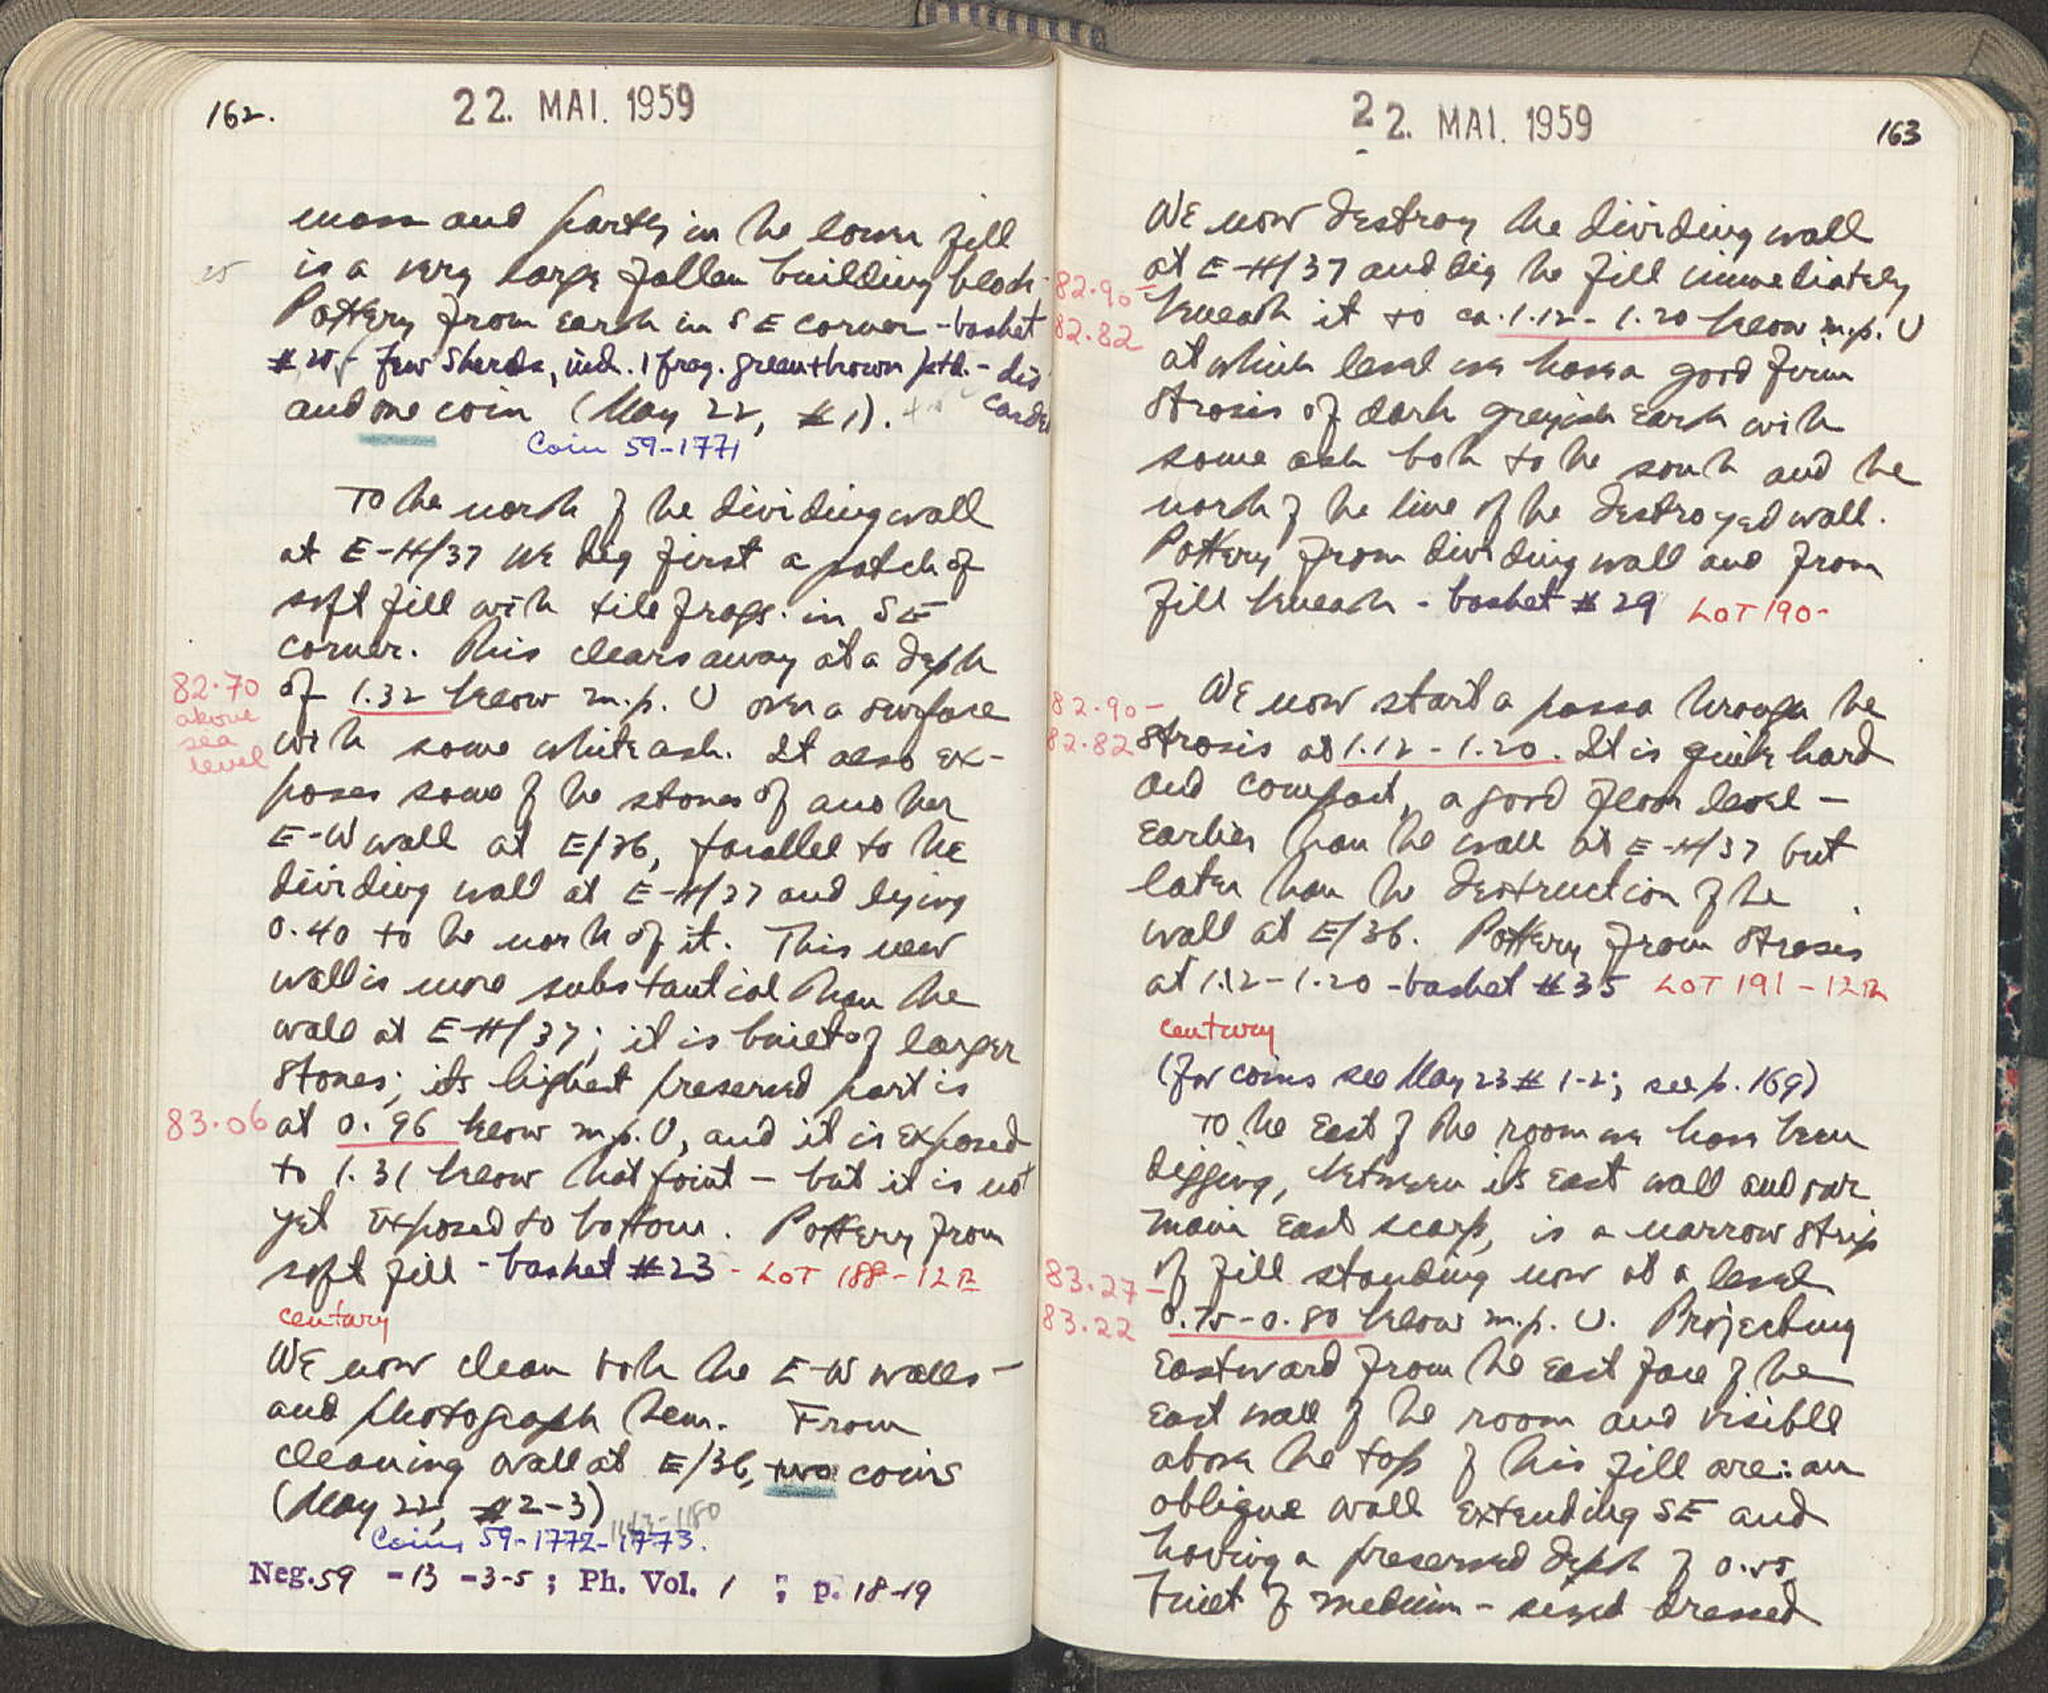 162.
22. MAI. 1959
mass and partly in the lower fill
is a very large fallen building block.
Pottery from earth in SE corner - basket
#25 - few sherds, incl. 1 frag. green+brown ptd. - dis
carded
and one coin (May 22, #1).
Coin 59-1771
To the north of the dividing wall
at E-H/37 we dig first a patch of
soft fill with tile frags. in SE
corner. This clears away at a depth
82.70
above
sea
level
of 1.32 below m.p. U over a surface
with some white ash. It also ex-
poses some of the stones of another
E-W wall at E/36, parallel to the
dividing wall at E-H/37 and lying
0.40 to the north of it. This new
wall is more substantial than the
wall at E-H/37; it is built of larger
stones; its highest preserved part is
83.06
at 0.96 below m.p. U, and it is exposed
to 1.31 below that point - but it is not
yet exposed to bottom. Pottery from
soft fill - basket #23 - LOT 188 - 12th
century
We now clean both the E-W walls -
and photograph them. From
cleaning wall at E/36, two coins
(May 22, #2-3)
1143-1180
Coins 59-1772-1773.
Neg. 59 - 13 - 3-5 ; Ph. Vol. 1 ; p. 18-19
22. MAI. 1959
163
We now destroy the dividing wall
at E-H/37 and dig the fill immediately
82.90-
82.82
beneath it to ca. 1.12 - 1.20 below m.p. U
at which level we have a good firm
strosis of dark greyish earth with
some ash both to the south and the
north of the line of the destroyed wall.
Pottery from dividing wall and from
fill beneath - basket #29 LOT 190-
82.90-
82.82
We now start a passa through the
strosis at 1.12 - 1.20. It is quite hard
and compact, a good floor level -
earlier than the wall at E-H/37 but
later than the destruction of the
wall at E/36. Pottery from strosis
at 1.12 - 1.20 - basket #35 LOT 191 - 12th
century
(for coins see May 23 # 1-2; see p. 169)
To the East of the room we have been
digging, between its east wall and our
main East scarp, is a narrow strip
83.27-
83.22
of fill standing now at a level
0.75-0.80 below m.p. U. Projecting
eastward from the East face of the
East wall of the room and visible
above the top of this fill are: an
oblique wall extending SE and
having a preserved depth of 0.55,
built of medium-sized dressed